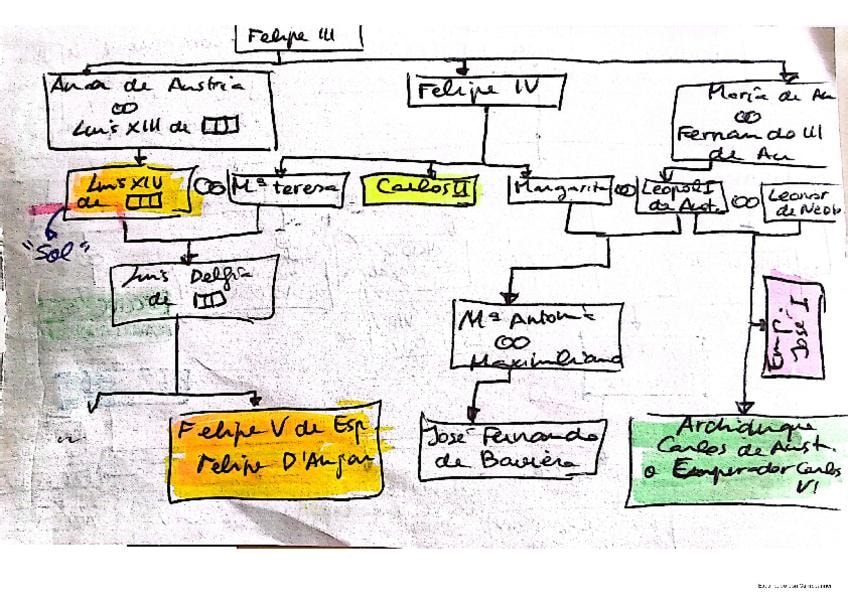 Felipe III
Anna de Austria
Luis XIII de
Felipe IV
María de Au
Fernando III
de Au
Luis XIV
de
Mª teresa
Carlos II
Margarita
Leopol I
de Aust.
Leonor
de Neob
"Sol"
Luis Delfín
de
Mª Antoni
Maximiliano
Emp.
José I
Felipe V de Esp.
Felipe D'Anjou
José Fernando
de Baviera
Archiduque
Carlos de Aust.
o Emperador Carlos
VI